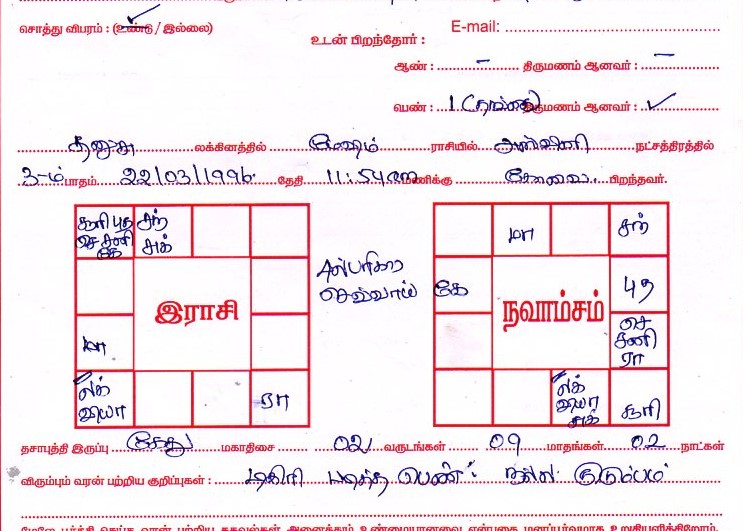 சொத்து விபரம் : (உண்டு / இல்லை)
E-mail:
உடன் பிறந்தோர் :
ஆண் : – திருமணம் ஆனவர் : –
பெண் : 1 திருமணம் ஆனவர் : ✓
தனுசு லக்கினத்தில் மேஷம் ராசியில் அஸ்வினி நட்சத்திரத்தில்
3-ம் பாதம் 22/03/1996 தேதி 11:54 மணிக்கு பிறந்தவர்.
சூரி புத சந்
செ சனி சுக்
கே
மா
லக்
ரா
இராசி
பரிகார
செவ்வாய்
மா சந்
கே புத
செ
சனி
ரா
லக்
சுக் சூரி
நவாம்சம்
தசாபுத்தி இருப்பு கேது மகாதிசை 02 வருடங்கள் 09 மாதங்கள் 02 நாட்கள்
விரும்பும் வரன் பற்றிய குறிப்புகள் : டிகிரி படித்த பெண் நல்ல குடும்பம்